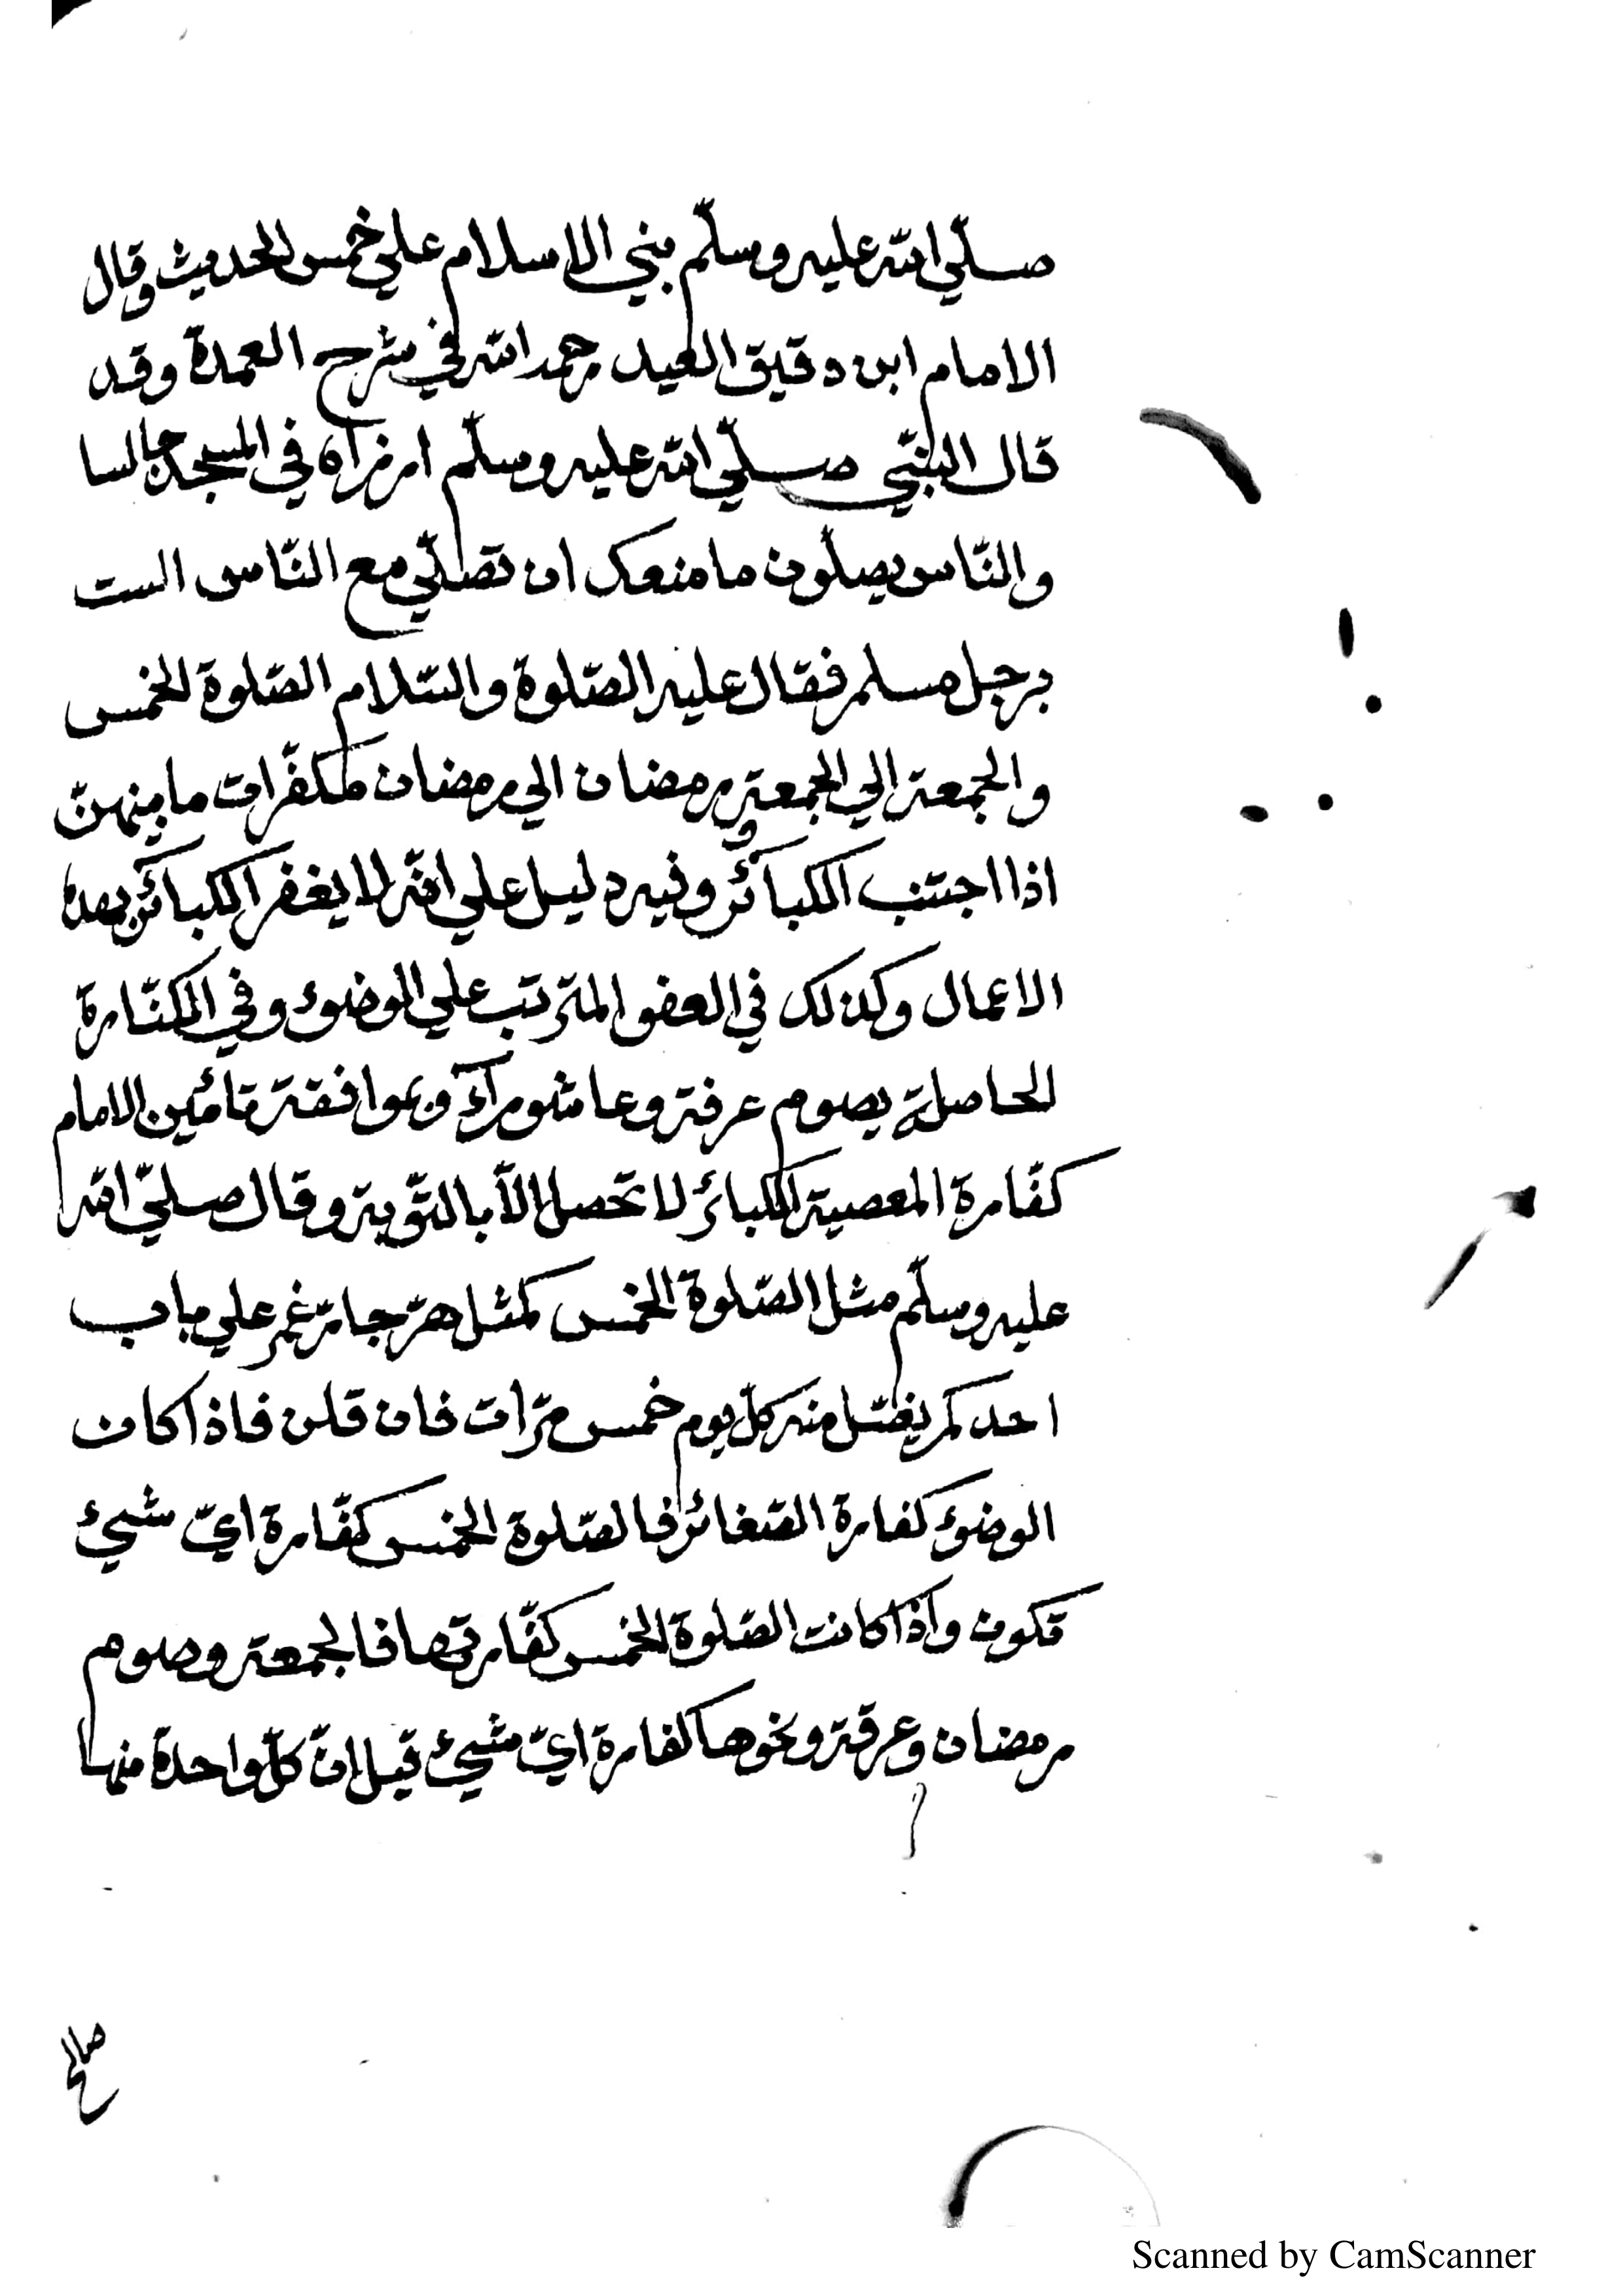 صلّي الله عليه وسلّم بني الاسلام علي خمس الحديث وقال
الامام ابن دقيق العيد رحمه الله في شرح العمدة وقد
قال النبّي صلّي الله عليه وسلّم اذ رٰاه في المسجد جالسا
والنّاس يصلّون ما منعك ان تصلّي مع النّاس الست
برجل مسلم فقال عليه الصّلوة والسّلام الصّلوة الخمس
والجمعة الي الجمعة ورمضان الي رمضان مكفّرات ما بينهنّ
اذا اجتنب الكبائر وفيه دليل علي انّه لا يغفر الكبائر بهذه
الاعمال وكذلك في العفو المترتب علي الوضوء وفي الكفّارة
الحاصلة بصوم عرفة وعاشورآء وموافقة تأمين الامام
كفّارة المعصية الكبائر لا تحصل الّا بالتّوبة وقال صلّي الله
عليه وسلّم مثل الصّلوة الخمس كمثل نهر جار غمر علي باب
احدكم يغتسل منه كلّ يوم خمس مرّات فان قلت فاذا كان
الوضوء كفارة الصّغائر فالصّلوة الخمس كفّارة ايّ شيئ
تكون واذا كانت الصّلوة الخمس كفّارتها فالجمعة وصوم
رمضان وعرفة ونحوها كفارة ايّ شيئ قيل انّ كلّ واحدة منها
صالح
Scanned by CamScanner